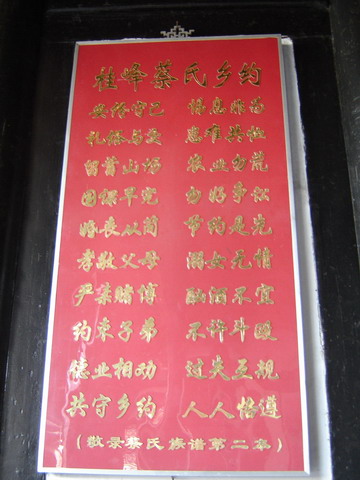 桂峰蔡氏乡约
安份守己 息非为
礼俗与交 患难共恤
留蓄山场 农业勿荒
国课早完 勿好争讼
婚丧从简 节约是先
孝敬父母 溺女无情
严禁赌博 酗酒不宜
约束子弟 不许斗殴
德业相劝 过失互规
共守乡约 人人恪遵
(敬录蔡氏族谱第二本)